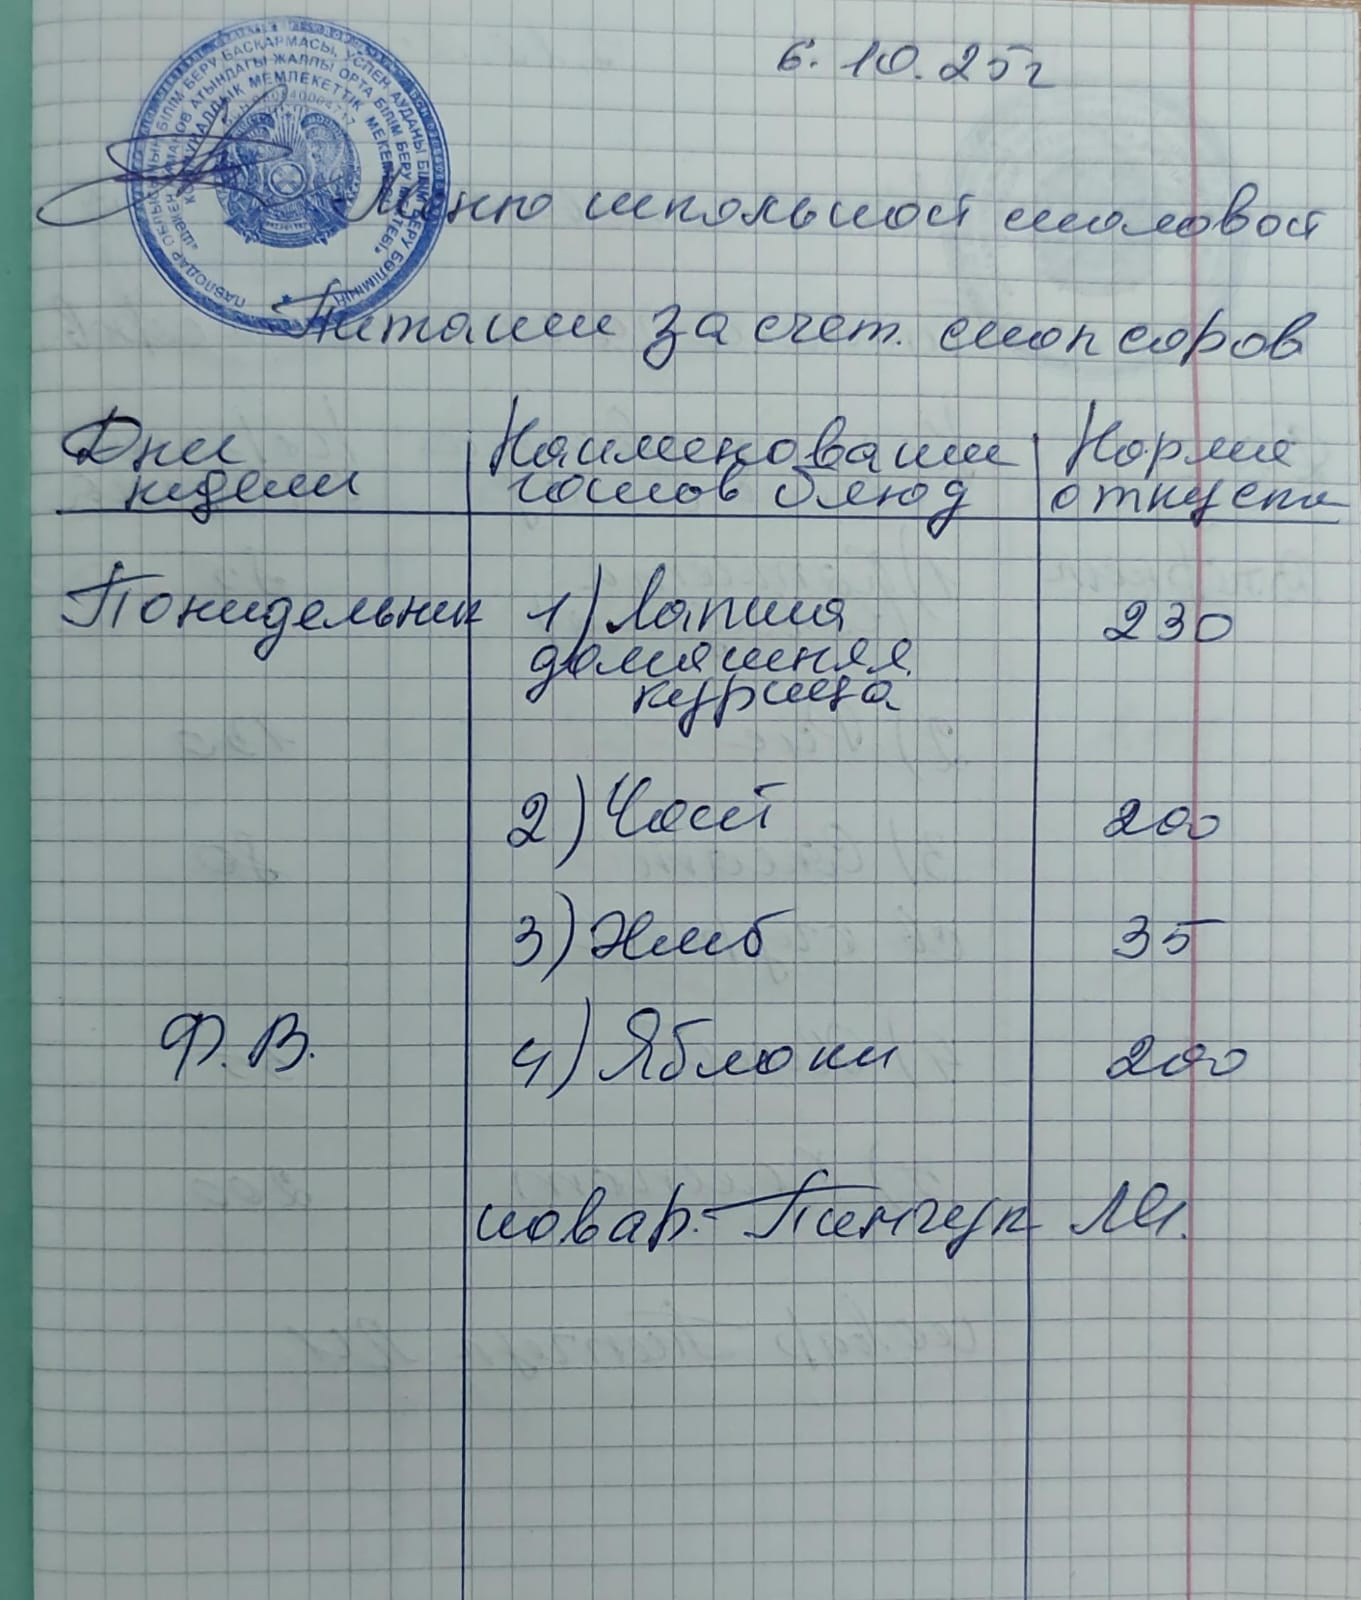 6.10.25г
Меню школьной столовой
Питание за счет. спонсоров
Дни недели | Наименование готов блюд | Норма отпуска
Понидельник 1) Лапша 230
домашняя
курица
2) Чай 200
3) Хлеб 35
Ф.В. 4) Яблоки 200
повар. Пинчук Л.И.
БІЛІМ БЕРУ БАСҚАРМАСЫ, УСПЕН АУДАНЫ БІЛІМ БЕРУ БӨЛІМІНІҢ
АТЫНДАҒЫ ЖАЛПЫ ОРТА БІЛІМ БЕРУ МЕКТЕБІ
КОММУНАЛДЫҚ МЕМЛЕКЕТТІК МЕКЕМЕСІ
ПАВЛОДАР ОБЛЫСЫНЫҢ